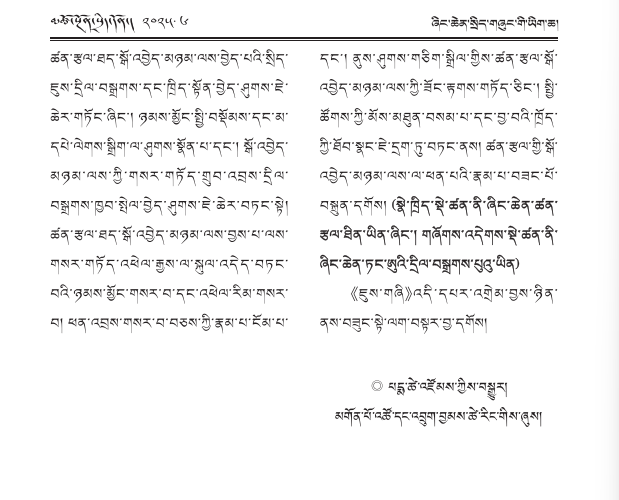 ༢༠༢༥.༦
ཞིང་ཆེན་སྲིད་གཞུང་གི་ཡིག་ཆ།
ཚན་རྩལ་ཐད་སྒོ་འབྱེད་མཉམ་ལས་བྱེད་པའི་སྲིད་
ཇུས་དྲིལ་བསྒྲགས་དང་ཁྲིད་སྟོན་བྱེད་ཤུགས་ཇེ་
ཆེར་གཏོང་ཞིང་། ཉམས་མྱོང་སྤྱི་བསྡོམས་དང་མ་
དཔེ་ལེགས་སྒྲིག་ལ་ཤུགས་སྣོན་པ་དང་། སྒོ་འབྱེད་
མཉམ་ལས་ཀྱི་གསར་གཏོད་གྲུབ་འབྲས་དྲིལ་
བསྒྲགས་ཁྱབ་སྤེལ་བྱེད་ཤུགས་ཇེ་ཆེར་བཏང་སྟེ།
ཚན་རྩལ་ཐད་སྒོ་འབྱེད་མཉམ་ལས་བྱས་པ་ལས་
གསར་གཏོད་འཕེལ་རྒྱས་ལ་སྐུལ་འདེད་བཏང་
བའི་ཉམས་མྱོང་གསར་བ་དང་འཕེལ་རིམ་གསར་
བ། ཕན་འབྲས་གསར་བ་བཅས་ཀྱི་རྣམ་པ་ངོམ་པ་
དང་། ནུས་ཤུགས་གཅིག་སྒྲིལ་གྱིས་ཚན་རྩལ་སྒོ་
འབྱེད་མཉམ་ལས་ཀྱི་ཟོང་རྟགས་གཏོད་ཅིང་། སྤྱི་
ཚོགས་ཀྱི་མོས་མཐུན་བསམ་པ་དང་བྱ་བའི་ཁྲོད་
ཀྱི་ཐོབ་སྣང་ཇེ་དྲག་ཏུ་བཏང་ནས། ཚན་རྩལ་གྱི་སྒོ་
འབྱེད་མཉམ་ལས་ལ་ཕན་པའི་རྣམ་པ་བཟང་པོ་
བསྐྲུན་དགོས། (སྣེ་ཁྲིད་སྡེ་ཚན་ནི་ཞིང་ཆེན་ཚན་
རྩལ་ཐིན་ཡིན་ཞིང་། གཞོགས་འདེགས་སྡེ་ཚན་ནི་
ཞིང་ཆེན་ཏང་ཨུའི་དྲིལ་བསྒྲགས་པུའུ་ཡིན)
《ཇུས་གཞི》འདི་དཔར་འགྲེམ་བྱས་ཉིན་
ནས་བཟུང་སྟེ་ལག་བསྟར་བྱ་དགོས།
◎ པདྨ་ཚེ་འཛོམས་ཀྱིས་བསྒྱུར།
མགོན་པོ་འཚོ་དང་འབྲུག་བྱམས་ཚེ་རིང་གིས་ཞུས།